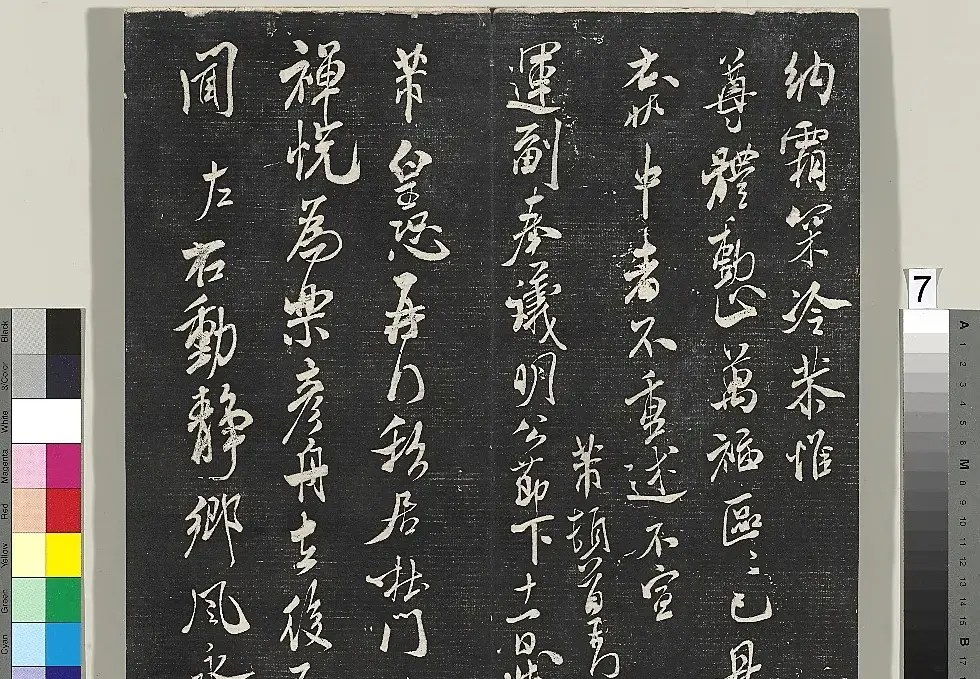 納霜寒冷恭惟
尊體動止萬福區〻已具
右状中書不重述不宣
芾頓首
運副奉議明公節下十一日
芾皇恐再行移居杜門
禪恱為樂彦舟去後不
聞左右動靜鄉風永
7
Black
3/Color
White
Magenta
Red
Yellow
Green
Cyan
A
1
2
3
4
5
6
M
8
9
10
11
12
13
14
15
B
17